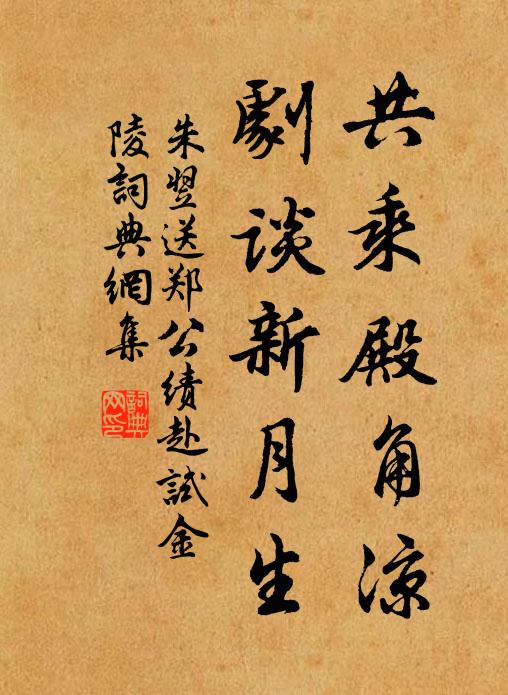 共乘殿角凉
劇谈新月生
朱翌送郑公绩赴試金
陵詞典網集
詞典网印